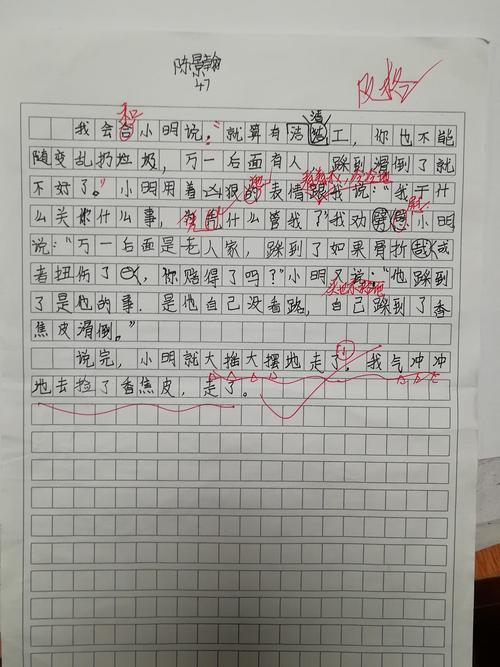 陈景翰
47
及格
和
洁
我会合小明说："就算有洁工，你也不能
随变乱扔垃圾，万一后面有人，踩到滑倒了就
不好了。"小明用着凶狠的表情跟我说："我干什
么关你什么事，凭什么管我？"我劝小明，
说："万一后面是老人家，踩到了如果骨折或
者扭伤了，你赔得了吗？"小明又说："他踩到
了是他的事，是他自己没看路，自己踩到了香
焦皮滑倒。"
说完，小明就大摇大摆地走了，我气冲冲
地去捡了香焦皮，走了。